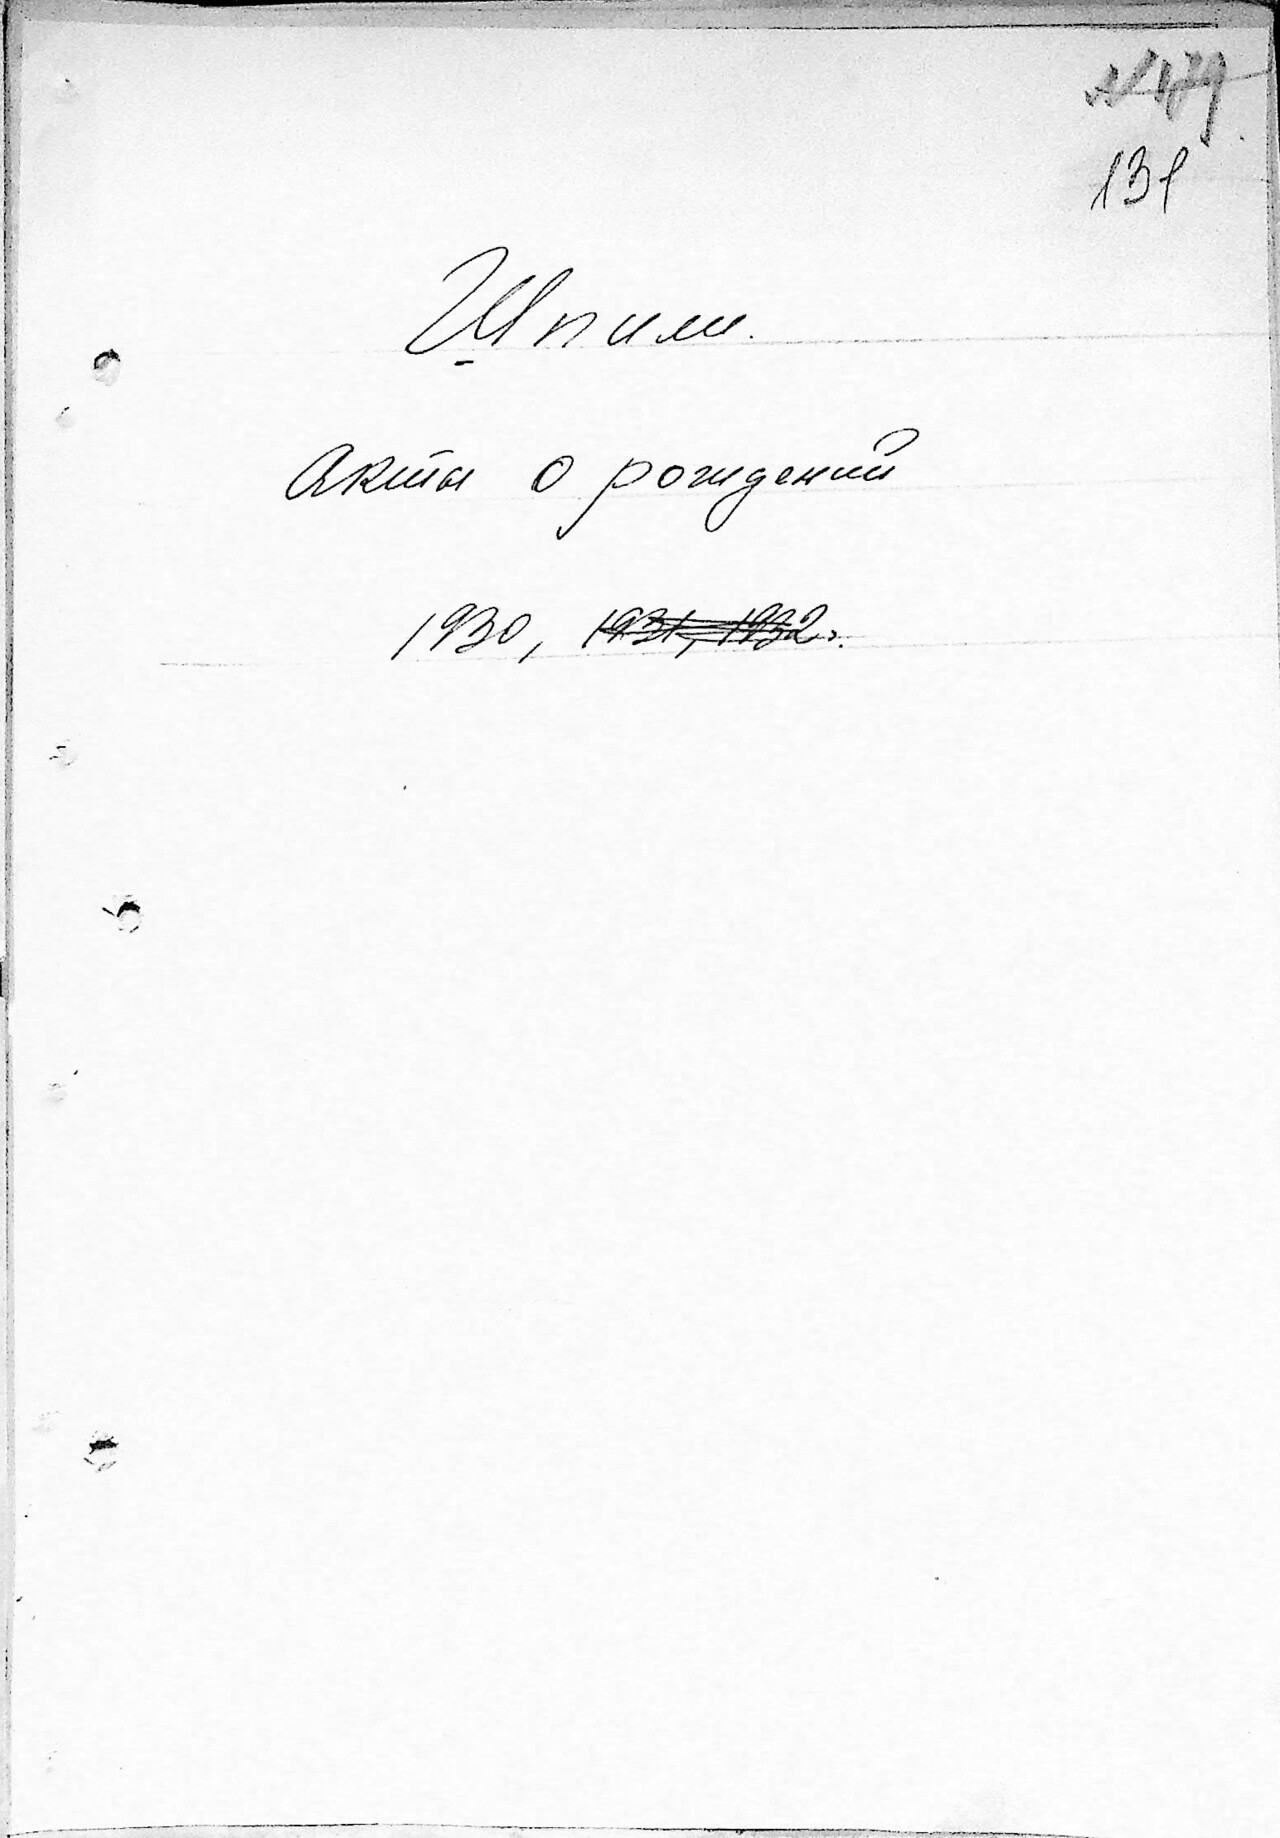 № 479
131
Шпили.
Акты о рождений
1930, 1931, 1932г.